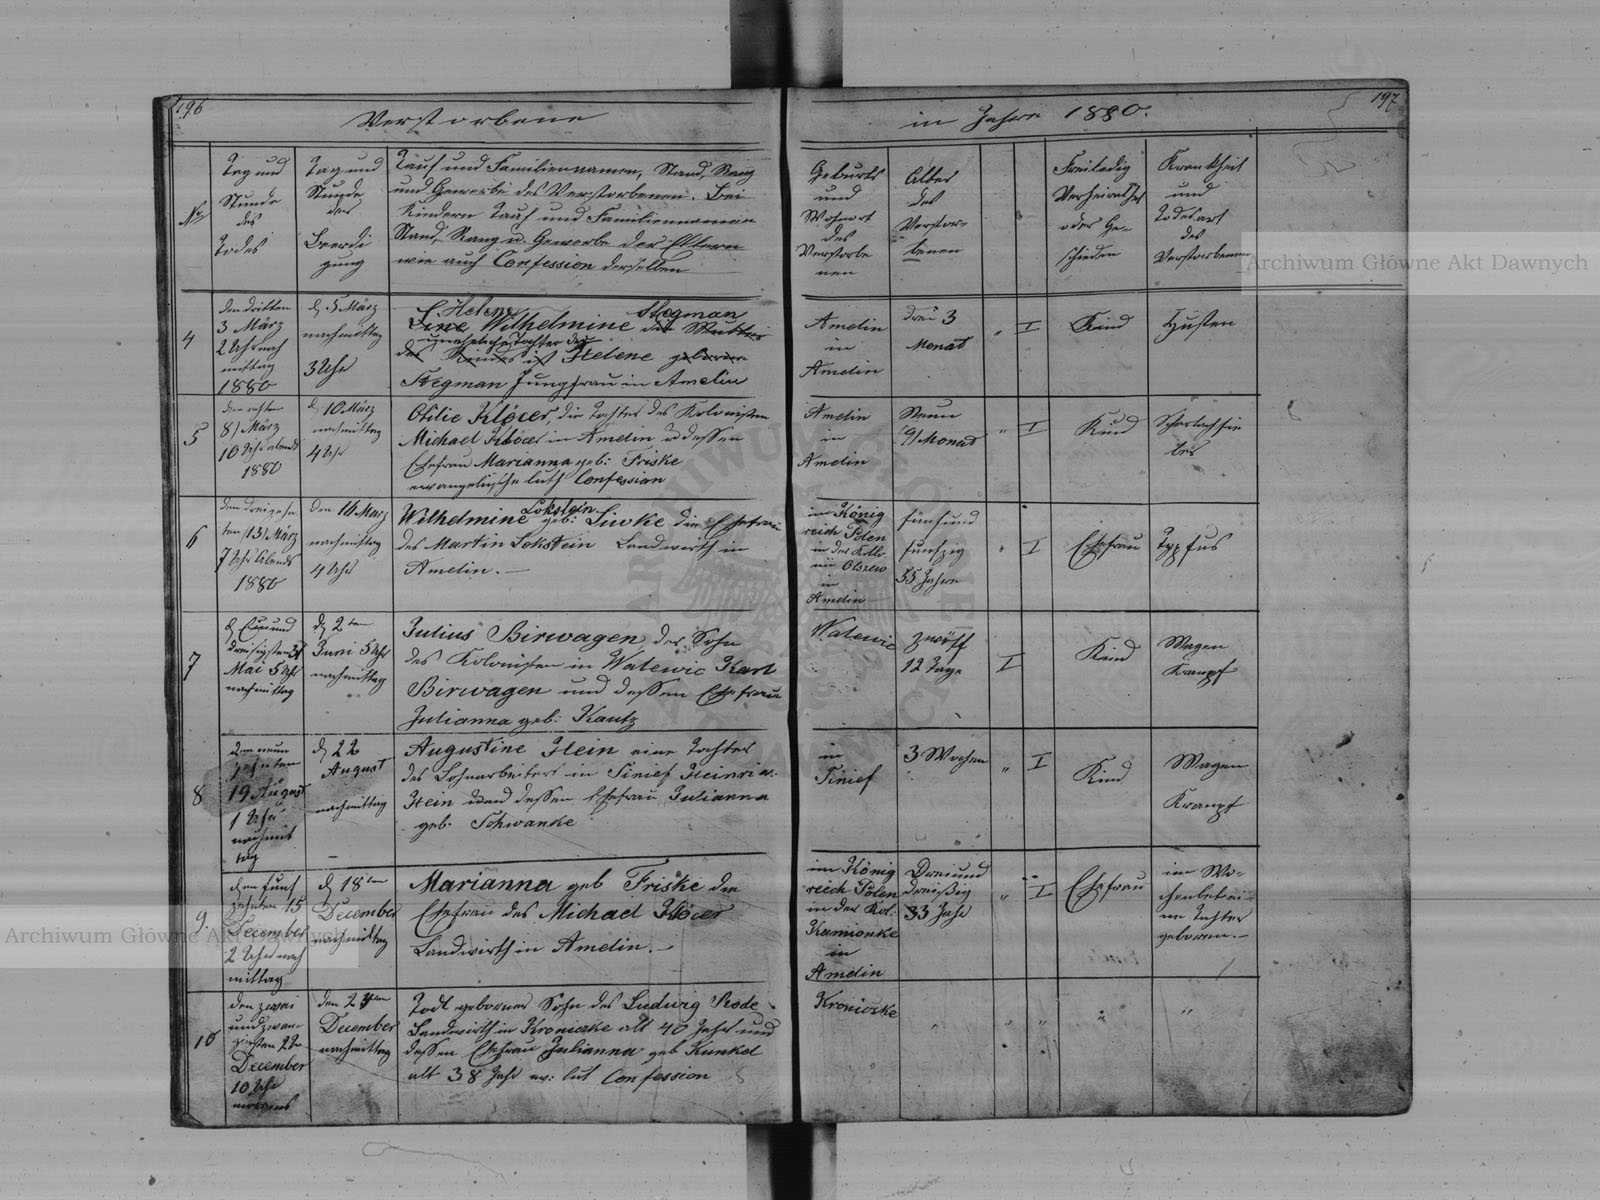 196
Verstorbene
in Jahre 1880.
197
No
Tag und
Stunde
des
Todes
Tag und
Stunde
der
Beerdi
gung
Tauf und Familiennamen, Stand, Rang
und Gewerbe des Verstorbenen. Bei
Kindern Tauf und Familiennamen
Stand, Rang u. Gewerbe der Eltern
wie auch Confession derselben
Geburts
und
Wohnort
des
Verstorbe
nen
Alter
des
Verstor-
benen
Frei ledig
Verheirathet
oder Ge-
schieden
Krankheit
und
Todesart
des
Verstorbenen
4
den dritten
3 März
2 Uhr nach
mittag
1880
d. 5 März
nachmittag
3 Uhr
Helene Stegman
Wilhelmine
uneheliche Tochter der
Helene
Stegman Jungfrau in Amelin
Amelin
in
Amelin
drei 3
Monat
" I
Kind
Husten
5
den achten
8) März
10 Uhr abend
1880
d. 10 März
nachmittag
4 Uhr
Otilie Klöcer, die Tochter des Kolonisten
Michael Klöcer in Amelin u dessen
Ehefrau Marianna geb: Friske
evangelische luth Confession
Amelin
in
Amelin
Neun
(9) Monat
" I
Kind
Scharlachfie
ber
6
den dreizehn
ten (13) März
7 Uhr Abends
1880
den 16 März
nachmittag
4 Uhr
Lokstein
Wilhelmine geb: Liwke die Ehefrau
des Martin Lokstein Landwirth in
Amelin. —
im König
reich Polen
in der Kollo
nii Olszew
in
Amelin
fünfund
funfzig
55 Jahre
" I
Ehefrau
Typfus
7
d. Einund
dreisigsten 31
Mai 5 Uhr
nachmittag
d. 2ten
Juni 5 Uhr
nachmittag
Julius Birwagen der Sohn
des Kolonisten in Walewic Karl
Birwagen und dessen Ehefrau
Julianna geb: Kautz
Walewic
zwölf
12 Tage
I
Kind
Magen
Krampf
8
den neun
zehnten
19 August
1 Uhr
nachmit
tag
d. 22
August
nachmittag
Augustine Hein eine Tochter
des Lohnarbeiters in Sinief Heinrich
Hein und dessen Ehefrau Julianna
geb. Schwanke
in
Sinief
3 Wochen
" I
Kind
Magen
Krampf
9.
den funf
zehnten 15
December
2 Uhr nach
mittag
d. 18ten
December
nachmittag
Marianna geb Friske die
Ehefrau des Michael Klöcer
Landwirth in Amelin. —
im König
reich Polen
in der Kol:
Kamionke
in
Amelin
Dreiund
dreißig
33 Jahr
" I
Ehefrau
im Wo-
chenbet ei-
ne Tochter
geboren. —
10
den zwei
und zwan-
zigsten 22
December
10 Uhr
morgens
den 24ten
December
nachmittag
Todt geborner Sohn des Ludwig Rode
Landwirth in Kroniczke alt 40 Jahr und
dessen Ehefrau Julianna geb Kunkel
alt 38 Jahr ev: lut Confession
Kroniczke
" " " " "
Archiwum Główne Akt Dawnych
Archiwum Główne Akt Dawnych